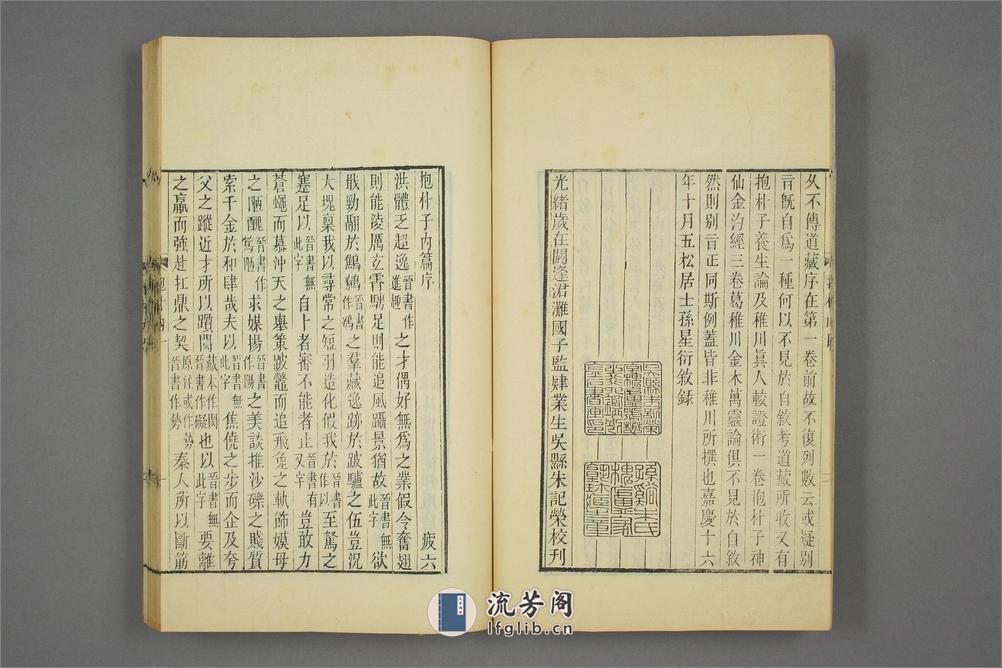 久不傳道藏序在第一卷前故不復列數云或疑別
言既自爲一種何以不見於自敘考道藏所收又有
抱朴子養生論及稚川眞人較證術一卷抱朴子神
仙金汋經三卷葛稚川金木萬靈論俱不見於自敘
然則別言正同斯例蓋皆非稚川所撰也嘉慶十六
年十月五松居士孫星衍敘錄
光緒歲在閼逢涒灘國子監肄業生吳縣朱記榮校刊
抱朴子內篇序 疲六
洪體乏超逸晉書作進趣之才偶好無爲之業假令奮翅
則能淩厲玄霄騁足則能追風躡景猶故晉書無此字欲
戢勁翮於鷦鷃晉書作鷃之羣藏逸跡於跛驢之伍豈況
大塊稟我以尋常之短羽造化假我於晉書作以至駑之
蹇足以晉書無此字自卜者審不能者止晉書有又字豈敢力
蒼蠅而慕沖天之舉策跛鼈而追飛兔之軌飾嫫母
之陋醜晉書作篤陋求媒揚晉書作陽之美談推沙礫之賤質
索千金於和肆哉夫以晉書無此字焦僥之步而企及夸
父之蹤近才所以躓閡藏本作閡晉書作礙也以晉書無此字要離
之羸而強赴扛鼎之契原注或作勢晉書作勢秦人所以斷筋
流芳阁
lfglib.cn